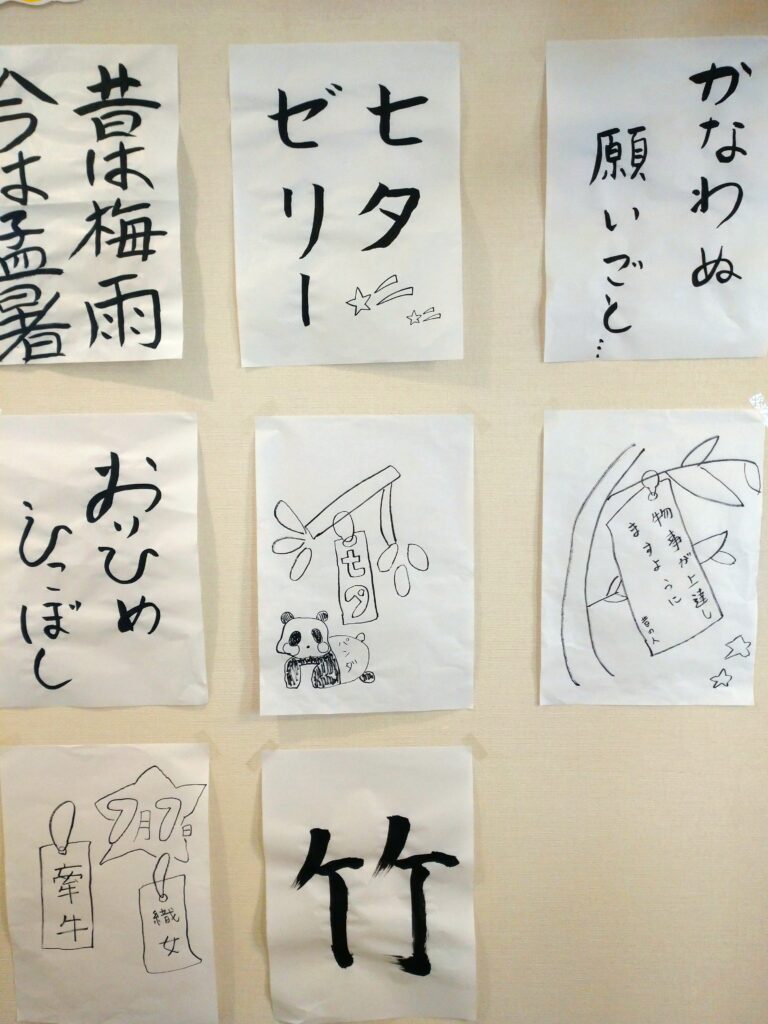 昔は梅雨
今は猛暑
七夕
ゼリー
かなわぬ
願いごと…
おりひめ
ひこぼし
七夕
パンダ
物事が上達し
ますように
昔の人
7月7日
織女
牽牛
竹